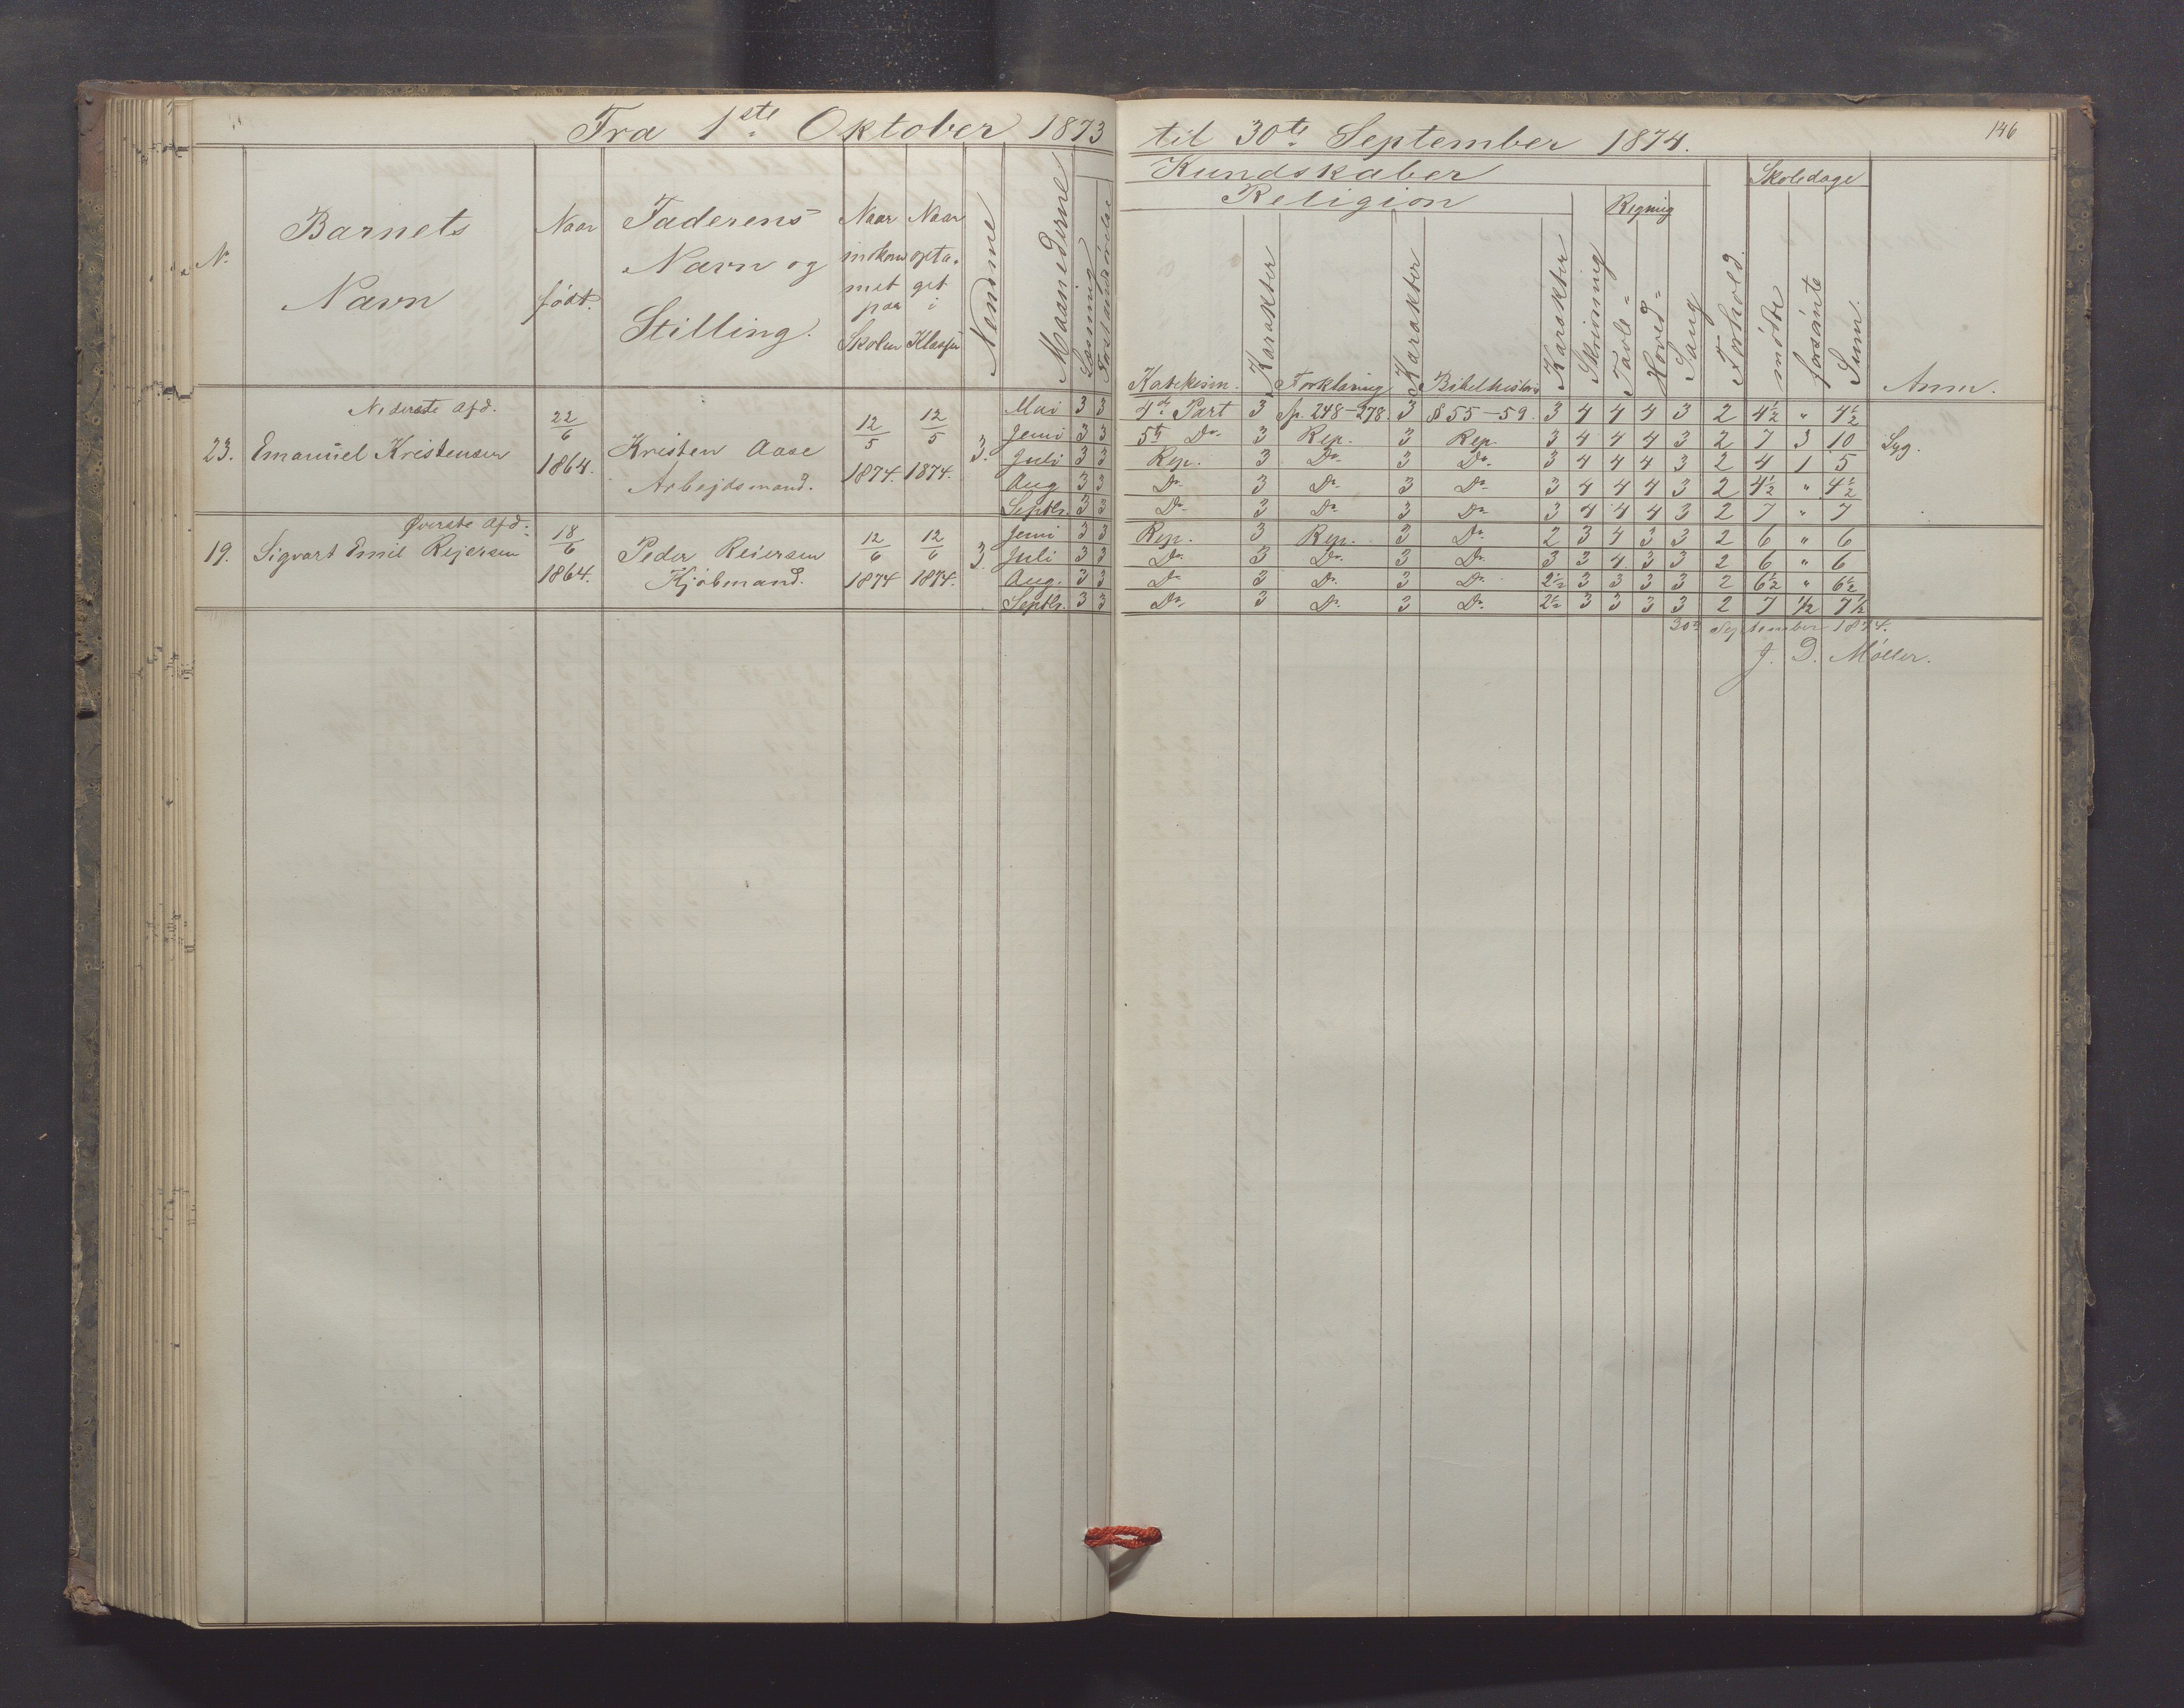 Fra 1ste Oktober 1873 til 30te September 1874.
146
No
Barnets Navn
Naar født.
Faderens Navn og Stilling.
Naar indkommet paa Skolen
Naar optaget i Klassen
Nemme
Maanederne
Læsning
Forstandsøvelse
Kundskaber
Religion
Katekism.
Karakter
Forklaring
Karakter
Bibelhistorie
Karakter
Skrivning
Regning
Tavle-
Hoved-
Sang
Forhold.
Skoledage
mødte
forsømte
Sum.
Anm.
Nederste Afd.
23. Emanuel Kristensen 22/6 1864. Kristen Aase Arbejdsmand. 12/5 1874. 12/5 1874. 3.
Mai 3 3 4de Part 3 Sp. 248-278. 3 § 55-59. 3 4 4 4 3 2 4½ " 4½
Juni 3 3 5te Do. 3 Rep. 3 Rep. 3 4 4 4 3 2 7 3 10 Syg.
Juli 3 3 Rep. 3 Do. 3 Do. 3 4 4 4 3 2 4 1 5
Aug 3 3 Do. 3 Do. 3 Do. 3 4 4 4 3 2 4½ " 4½
Septbr. 3 3 Do. 3 Do. 3 Do. 3 4 4 4 3 2 7 " 7
Øverste Afd.
19. Sigvart Emil Rejersen 18/6 1864. Peder Reiersen Kjøbmand. 12/6 1874 12/6 1874. 3.
Juni 3 3 Rep. 3 Rep. 3 Do. 2 3 4 3 3 2 6 " 6
Juli 3 3 Do. 3 Do. 3 Do. 3 3 4 3 3 2 6 " 6
Aug. 3 3 Do. 3 Do. 3 Do. 2½ 3 3 3 3 2 6½ " 6½
Septbr. 3 3 Do. 3 Do. 3 Do. 2½ 3 3 3 3 2 7 ½ 7½
30te September 1874.
J. D. Møller.